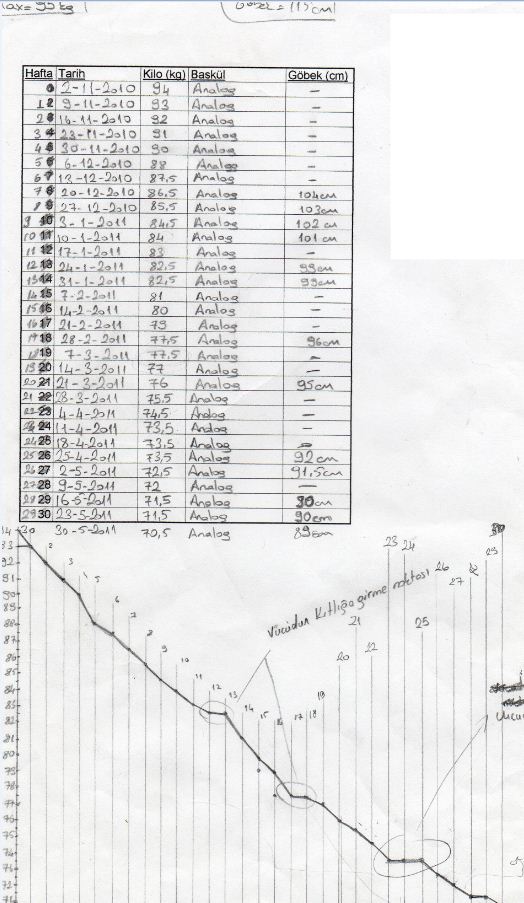 Max= 95 kg Göbek = 115 cm
Hafta Tarih Kilo (kg) Baskül Göbek (cm)
0 2-11-2010 94 Analog —
1 2 9-11-2010 93 Analog —
2 3 16-11-2010 92 Analog —
3 4 23-11-2010 91 Analog —
4 5 30-11-2010 90 Analog —
5 6 6-12-2010 88 Analog —
6 7 13-12-2010 87,5 Analog —
7 8 20-12-2010 86,5 Analog 104cm
8 9 27-12-2010 85,5 Analog 103cm
9 10 3-1-2011 84,5 Analog 102 cm
10 11 10-1-2011 84 Analog 101 cm
11 12 17-1-2011 83 Analog —
12 13 24-1-2011 82,5 Analog 99cm
13 14 31-1-2011 82,5 Analog 99cm
14 15 7-2-2011 81 Analog —
15 16 14-2-2011 80 Analog —
16 17 21-2-2011 79 Analog —
17 18 28-2-2011 77,5 Analog 96cm
18 19 7-3-2011 77,5 Analog —
19 20 14-3-2011 77 Analog —
20 21 21-3-2011 76 Analog 95cm
21 22 28-3-2011 75,5 Analog —
22 23 4-4-2011 74,5 Analog —
23 24 11-4-2011 73,5 Analog —
24 25 18-4-2011 73,5 Analog —
25 26 25-4-2011 73,5 Analog 92cm
26 27 2-5-2011 72,5 Analog 91,5cm
27 28 9-5-2011 72 Analog —
28 29 16-5-2011 71,5 Analog 90cm
29 30 23-5-2011 71,5 Analog 90cm
30 30-5-2011 70,5 Analog 89cm
Vücudun kıtlığa girme noktası
1 2 3 4 5 6 7 8 9 10 11 12 13 14 15 16 17 18 19 20 21 22 23 24 25 26 27 29
93
92
91
90
89
88
87
86
85
84
83
82
81
80
79
78
77
76
75
74
73
72
71